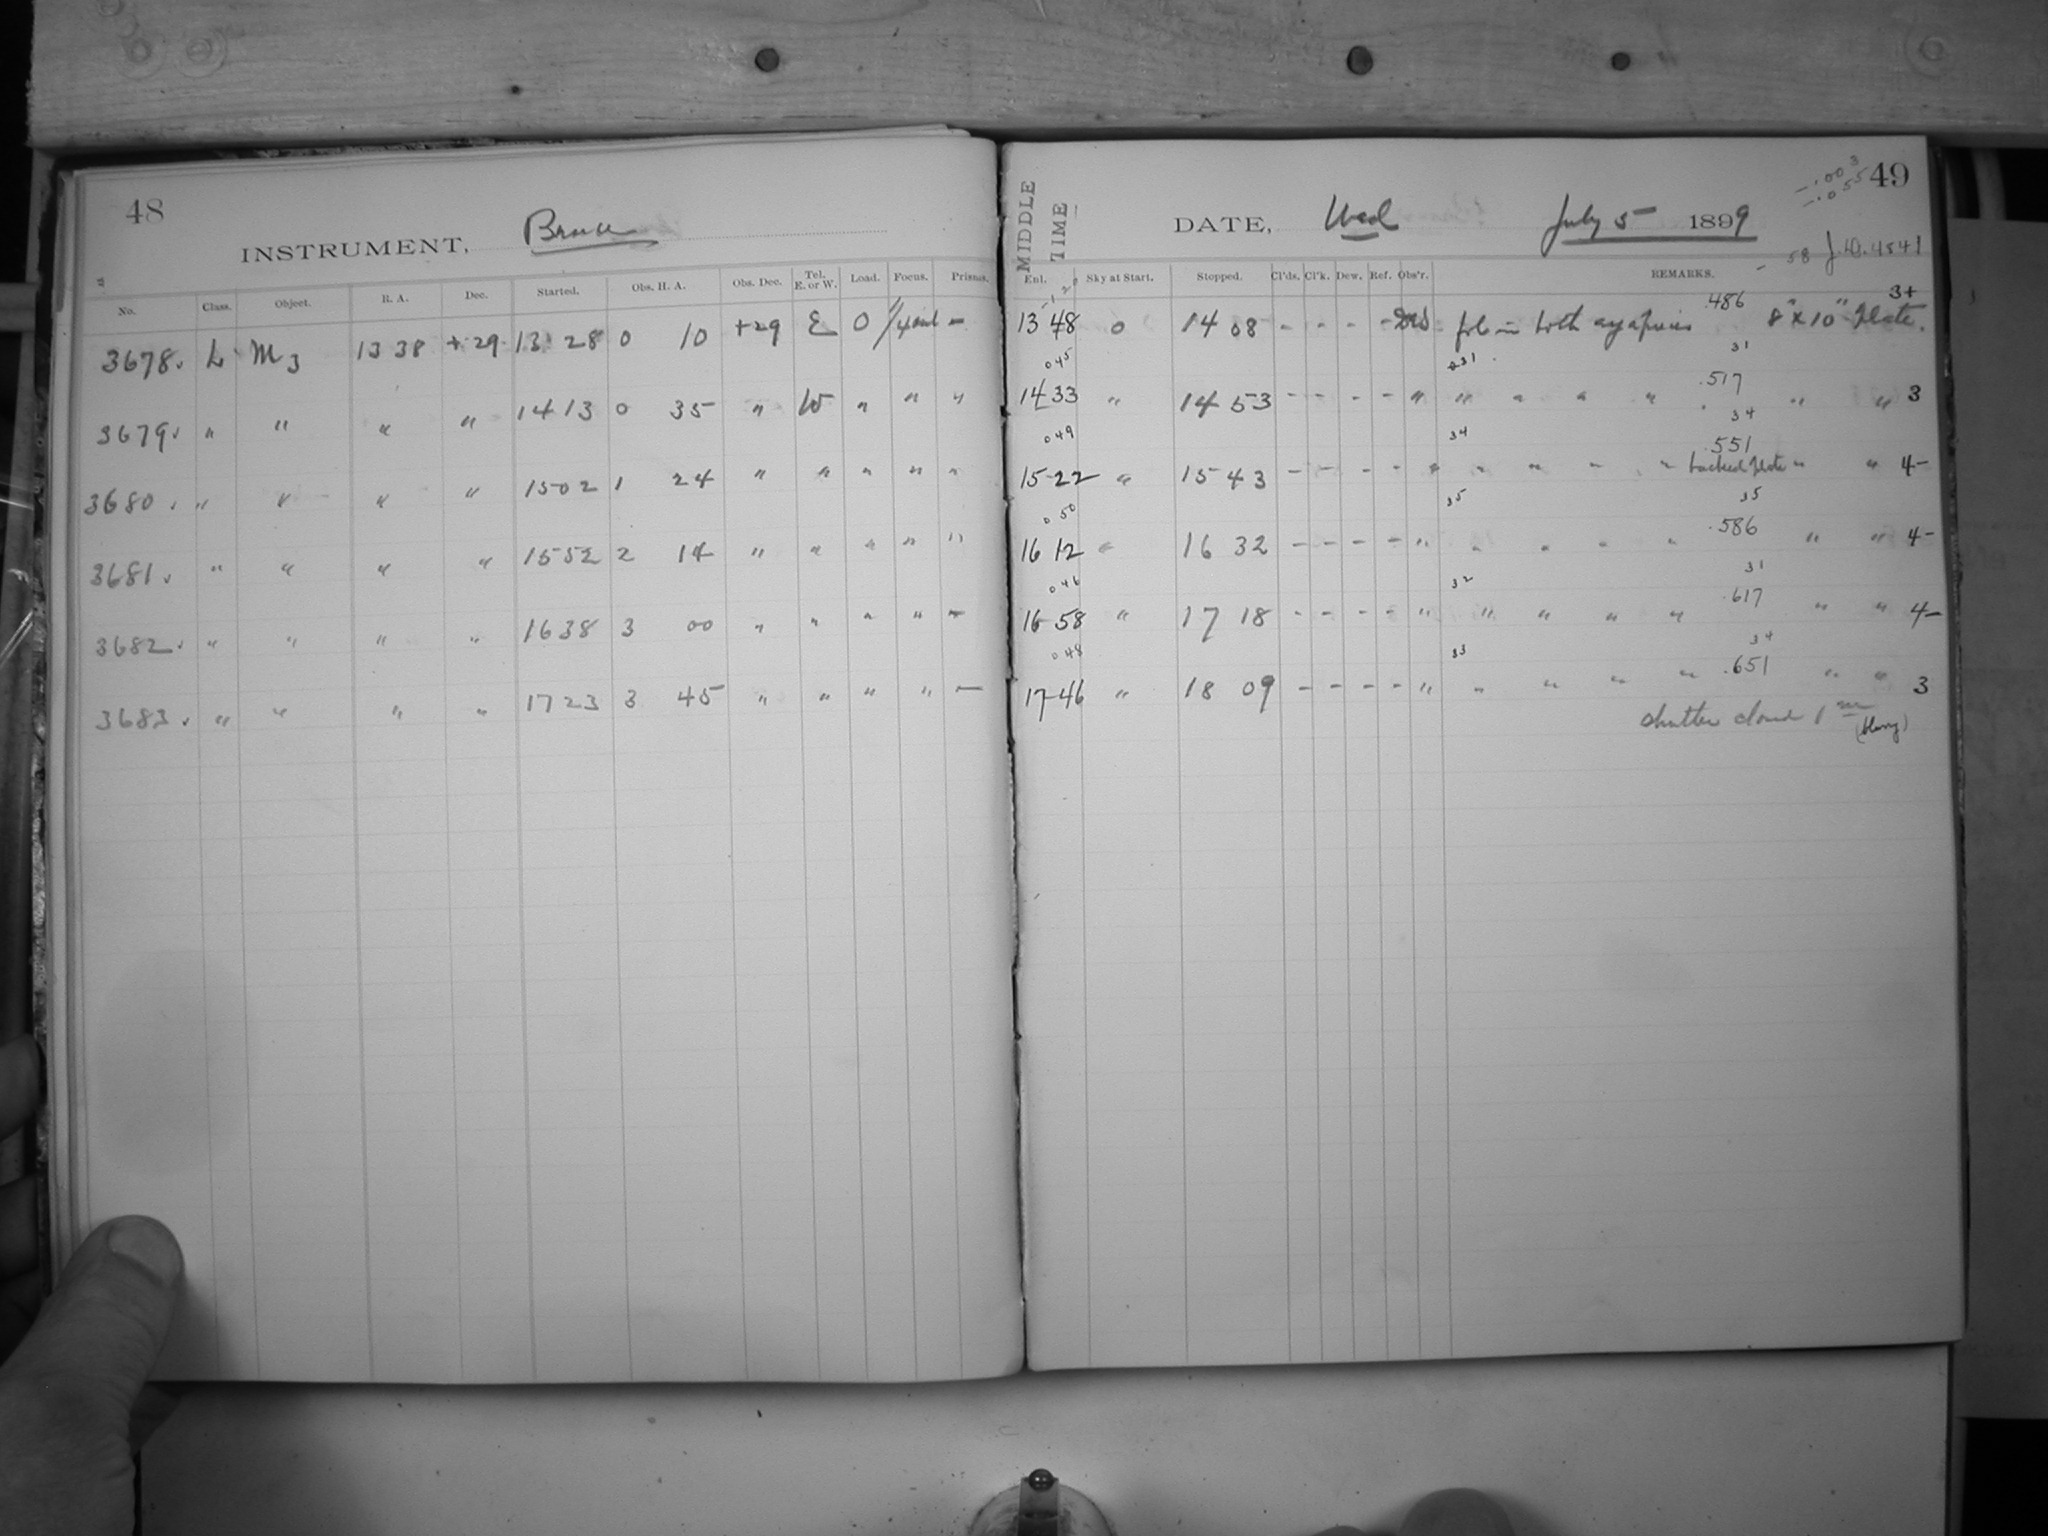 48
INSTRUMENT, Bruce
No. Class. Object. R. A. Dec. Started. Obs. H. A. Obs. Dec. Tel. E. or W. Load. Focus. Prisms.
3678 L M 3 13 38 +29 13 28 0 10 +29 E 0 —
3679 " " " " 14 13 0 35 " W " " "
3680 " " " " 15 02 1 24 " " " " "
3681 " " " " 15 52 2 14 " " " " "
3682 " " " " 16 38 3 00 " " " " —
3683 " " " " 17 23 3 45 " " " " —
49
-.003
-.055
MIDDLE TIME
DATE, Wed July 5 1899
- 58 J.D. 4541
Enl. Sky at Start. Stopped. Cl'ds. Cl'k. Dew. Ref. Obs'r. REMARKS.
.486 3+
13 48 0 14 08 - - - - in both 8" x 10" plate.
045 31
.517
14 33 " 14 53 - - - - " " " " " " " 3
049 34 34
.551
15 22 " 15 43 - - - - " " " " " backed plate " " 4-
050 35 35
.586
16 12 " 16 32 - - - - " " " " " " " 4-
046 32 31
.617
16 58 " 17 18 - - - - " " " " " " " 4-
048 33 34
.651
17 46 " 18 09 - - - - " " " " " " " 3
shutter closed 1 m